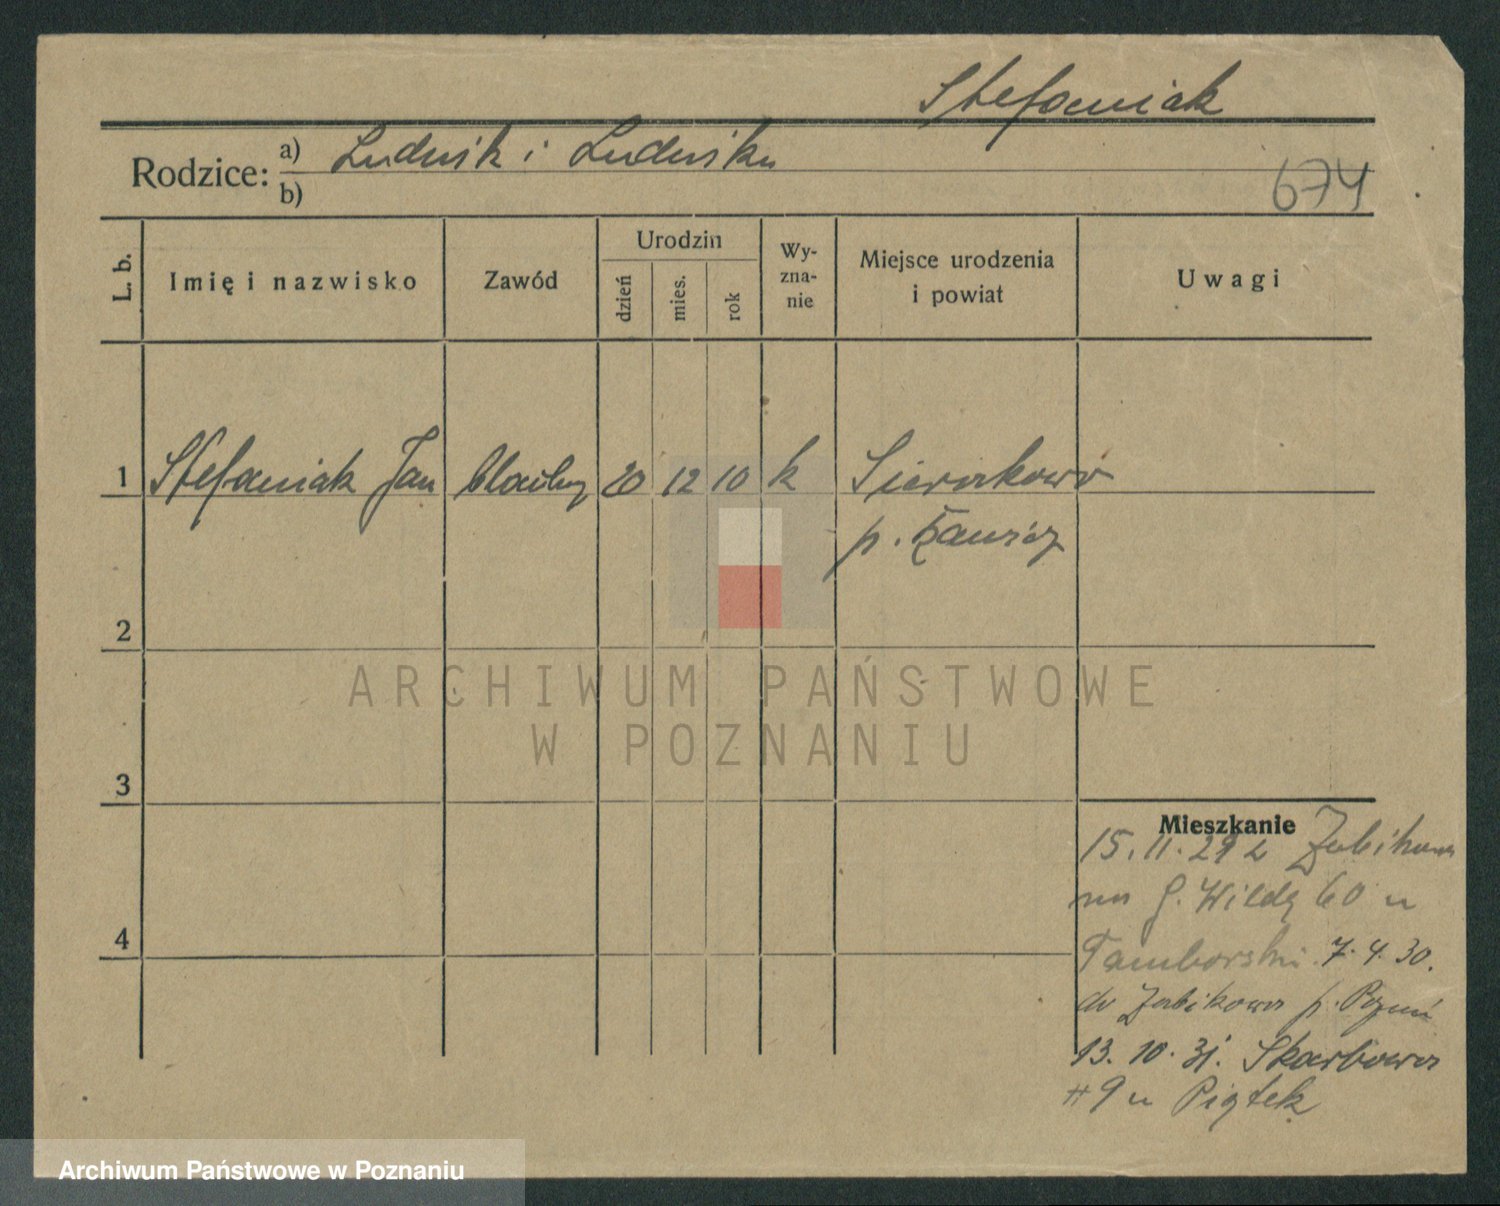 Stefaniak
Rodzice: a) Ludwik i Ludwika
b)
674
L. b.
Imię i nazwisko
Zawód
Urodzin
dzień
mies.
rok
Wy-
zna-
nie
Miejsce urodzenia
i powiat
Uwagi
1 Stefaniak Jan 20 12 10 k Sierakowo
p. Rawicz
2
3
4
Mieszkanie
15.11.29 z Żabikowa
na G. Wildę 60 u
Tamborski 7.4.30.
do Żabikowa p. Pozn
13.10.31. Skarbowa
# 9 u Piątek
ARCHIWUM PAŃSTWOWE
W POZNANIU
Archiwum Państwowe w Poznaniu